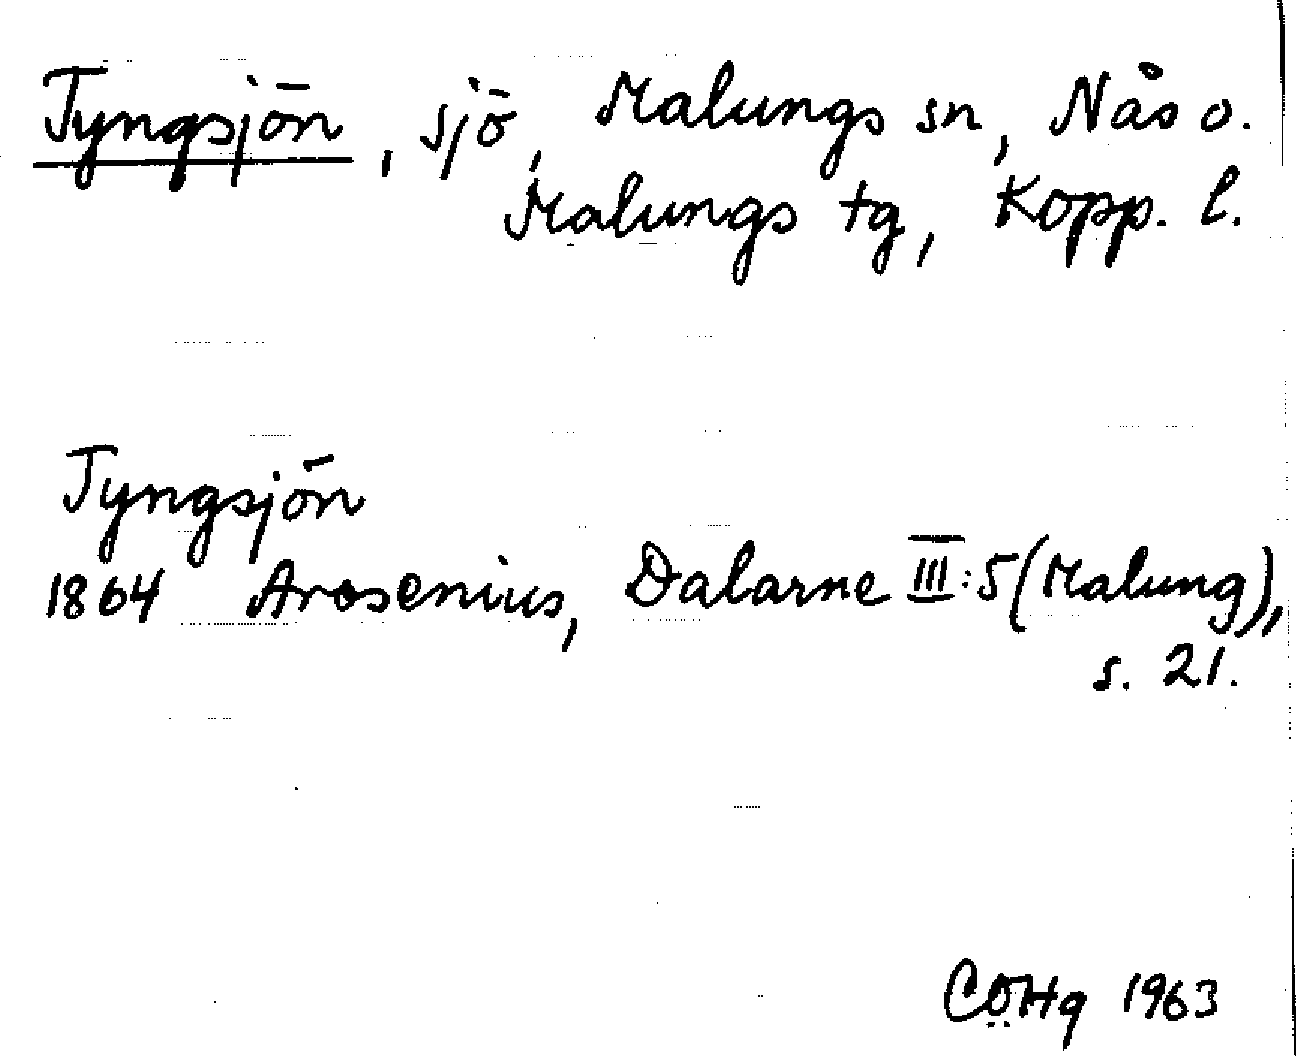 Tyngsjön, sjö, Malungs sn, Nås o.
Malungs tg, Kopp. l.
Tyngsjön
1864 Arosenius, Dalarne III:5 (Malung),
s. 21.
CÖHg 1963